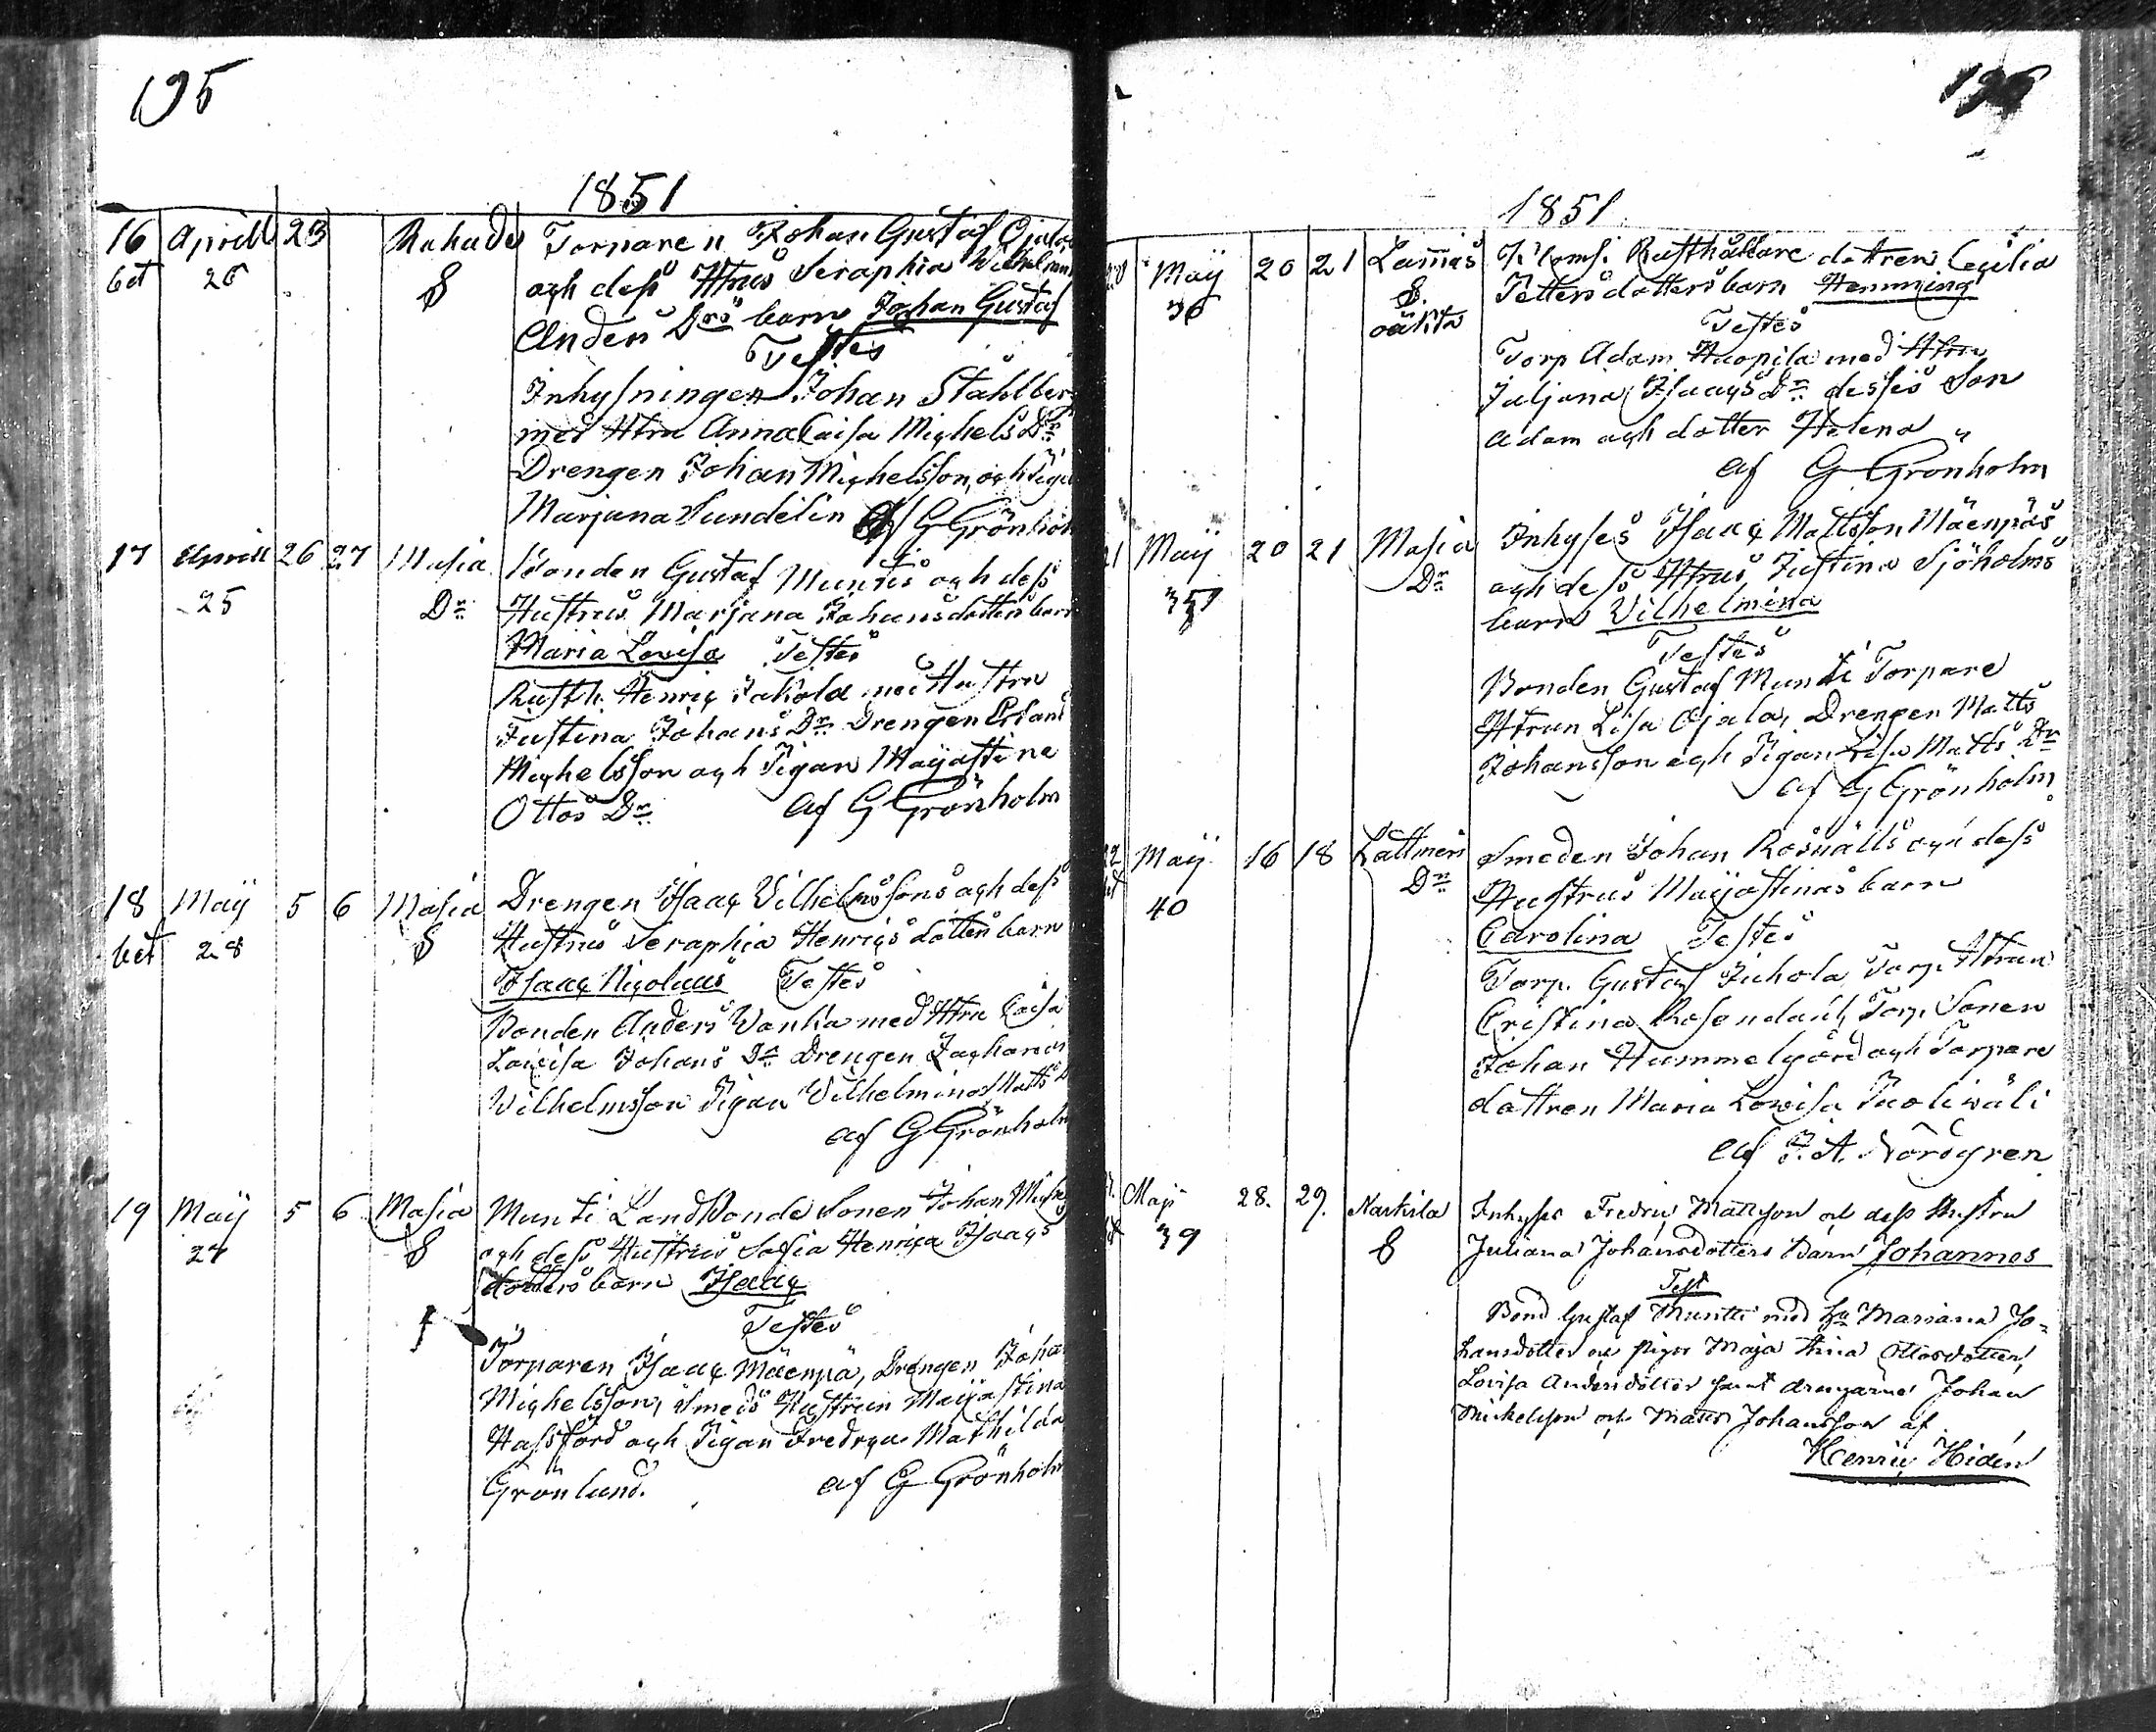 195
1851
16 Aprill 23 Rahade Torparen Johan Gustaf Ojala
bet 26 S och dess Hstrus Seraphia Wilhelmina
Anders Drs barn Johan Gustaf
Testes
Inhysningen Johan Stahlberg
med Htru Anna Caisa Michels Dr
Drengen Johan Michelsson, och Pigan
Marjana Sundelin af G Grönholm
17 Aprill 26 27 Masia Bonden Gustaf Muntis och dess
25 Dr Hustrus Marjana Johansdotters barn
Maria Lovisa Testes
Rusth. Henric Jakola med Hustru
Justina Johans Dr Drengen
Michelsson och Pigan Majastina
Ottos Dr af G Grönholm
18 Maij 5 6 Masia Drengen Isaac Vilhelmssons och dess
bet 28 S Hustrus Seraphia Henrics dotters barn
Isaac Nicolaus Testes
Bonden Anders Wanha med Htru Caisa
Lovisa Johans Dr Drengen Zacharias
Vilhelmsson Pigan Vilhelmina Matts D
af G Grönholm
19 Maij 5 6 Masia Munti Landbonde Sonen Johan
27 S och dess Hustrus Sofia Henrica Isaacs
dotters barn Isaac
Testes
Torparen Isaac Mäenpä, Drengen Johan
Michelsson, Smeds Hustrun Maijastina
Hassford och Pigan Fredrica Mathilda
Grönlund. af G Grönholm
196
1851
20 Maij 20 21 Lammais Rusthållare dottren Cecilia
36 S. Petters dotters barn Hemming
oäkta Testes
Torp Adam Haapila med Htru
Juljana Isaacs Dr desses Son
Adam och dotter Helena
af G Grönholm
21 Maij 20 21 Masia Inhyses Isaac Mattsson Mäenpäs
Dr och dess Htrus Justina Sjöholms
barn Vilhelmina
Testes
Bonden Gustaf Munti Torpare
Htrun Lisa Ojala, Drengen Matts
Johansson och Pigan Lisa Matts Dr
af G Grönholm
22 Maij 16 18 Lattmeri Smeden Johan Rosnalls och dess
40 Dr Hustrus Maijastinas barn
Carolina Testes
Torp. Gustaf Juhola Torp. Htrun
Cristina Rosendahl, Torp. Sonen
Johan Hummelgård och Torpare
dottren Maria Lovisa Puoliwäli
af J. A. Nordgren
Maji 28. 29. Naskila Inhyses Fredric Mattsson och dess Hustru
39 S Juliana Johansdotters Barn Johannes
Test
Bond Gustaf Muntti med Hu Mariana Jo=
hansdotter och pigor Maja Stina Ottosdotter,
Lovisa Andersdotter samt drengarne Johan
Mickelsson och Matts Johansson af
Henric Hidén